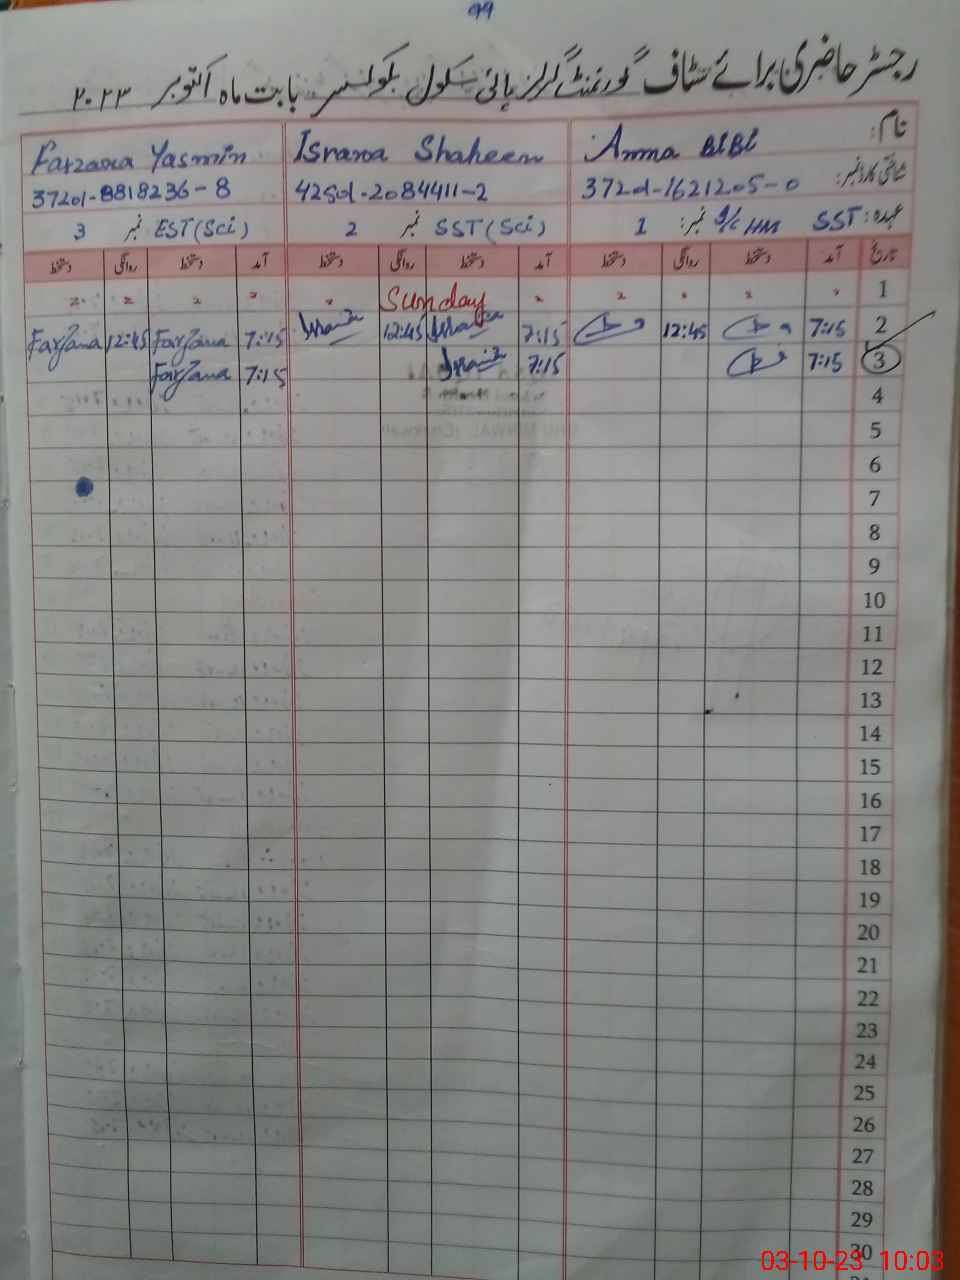 99
رجسٹر حاضری برائے سٹاف گورنمنٹ گرلز ہائی سکول بابت ماہ اکتوبر ۲۰۲۳
نام: Amna BIBI Israra Shaheen Farzana Yasmin
شناختی کارڈ نمبر: 37201-8818236-8
عہدہ: SST I/C HM نمبر: 1 SST (Sci) نمبر 2 EST (Sci) نمبر 3
تاریخ آمد دستخط روانگی دستخط آمد دستخط روانگی دستخط آمد دستخط روانگی دستخط
1 Sunday
2 7:15 12:45 7:15 12:45 7:15 Farzana 12:45 Farzana
3 7:15 7:15 7:15 Farzana
4
5
6
7
8
9
10
11
12
13
14
15
16
17
18
19
20
21
22
23
24
25
26
27
28
29
30
03-10-23 10:03